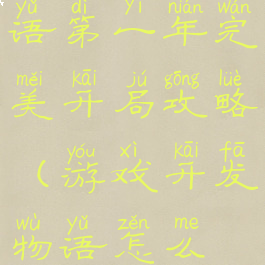 yǔ dì yī nián wán
语第一年完
měi kāi jú gōng lüè
美开局攻略
yóu xì kāi fā
(游戏开发
wù yǔ zěn me
物语怎么